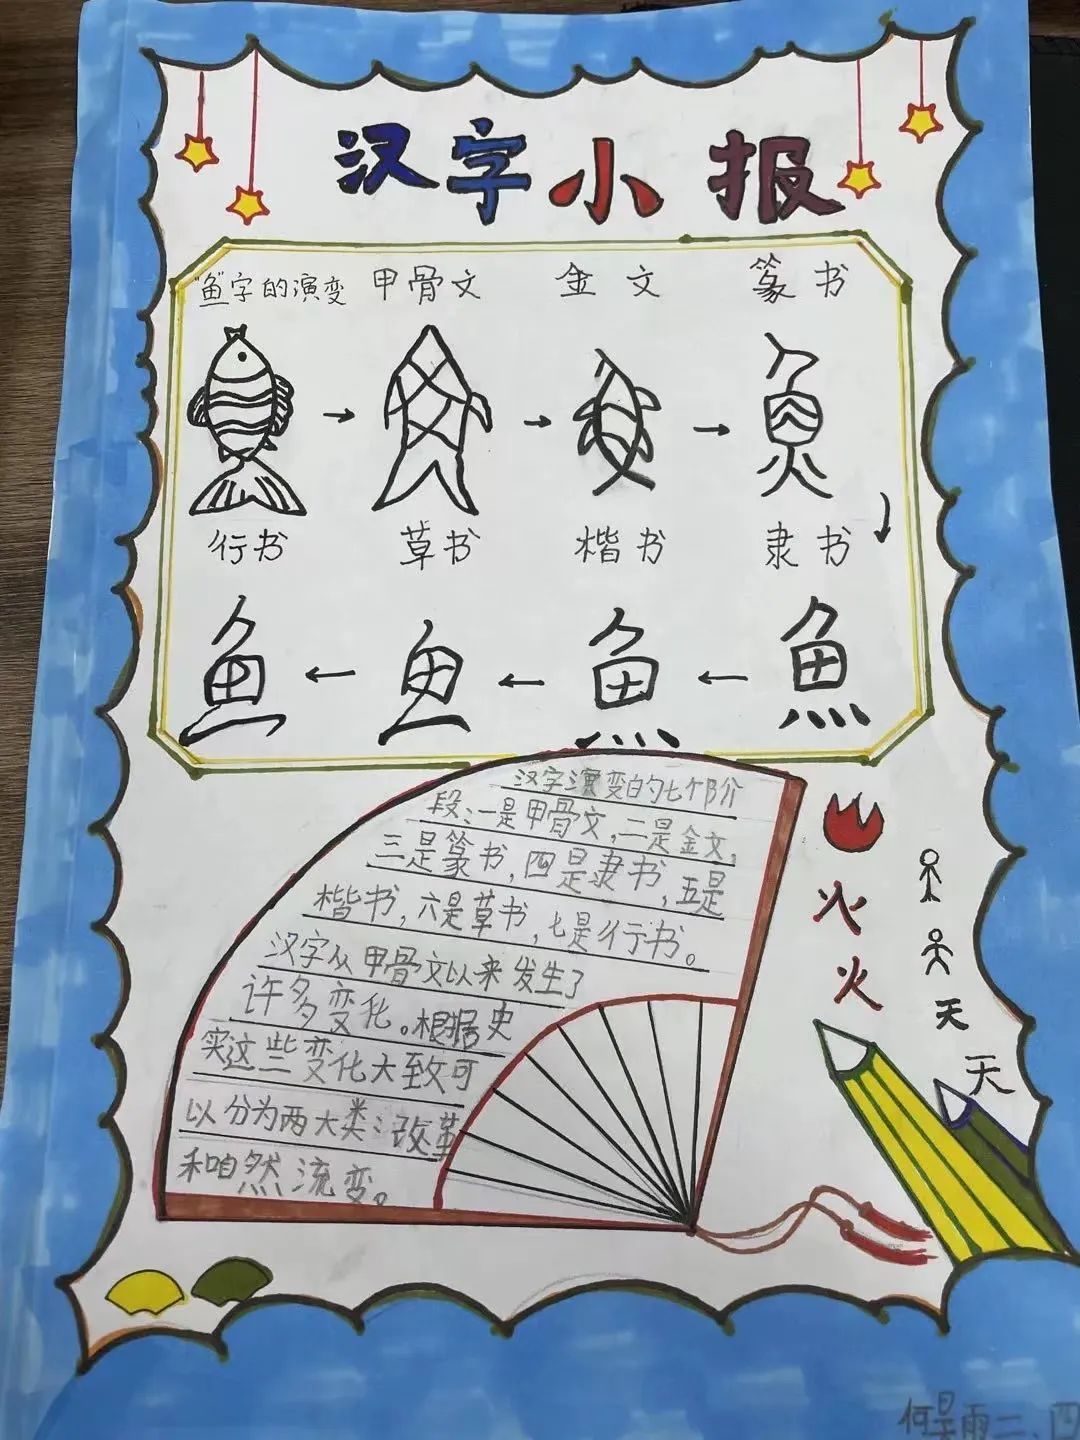 汉字小报
“鱼”字的演变 甲骨文 金文 篆书
行书 草书 楷书 隶书
鱼 鱼 魚 魚
汉字演变的七个阶
段：一是甲骨文，二是金文，
三是篆书，四是隶书，五是
楷书，六是草书，七是行书。
汉字从甲骨文以来发生了
许多变化。根据史
实这些变化大致可
以分为两大类：改革
和自然流变。
火
火
天
天
何昊雨二、四